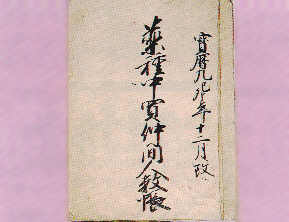 寶暦九己卯年十二月改
薬種中買仲間人数帳